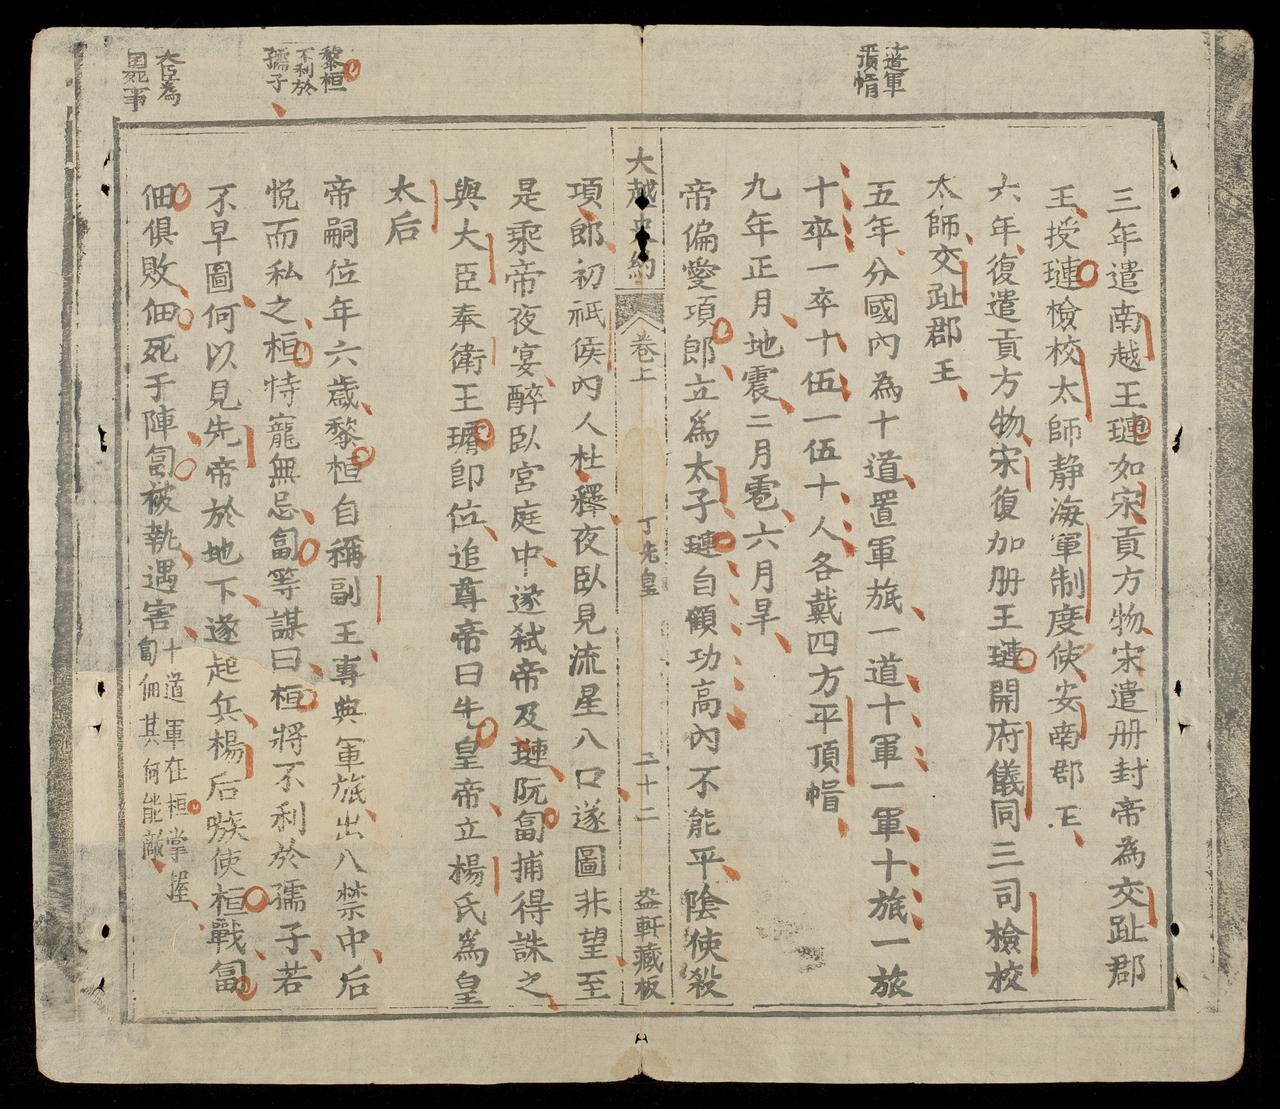 道軍
平頂帽
三年遣南越王璉如宋貢方物宋遣册封帝為交趾郡
王授璉檢校太師静海軍制度使安南郡王
六年復遣貢方物宋復加册王璉開府儀同三司檢校
太師交趾郡王
五年分國內為十道置軍旅一道十軍一軍十旅一旅
十卒一卒十伍一伍十人各戴四方平頂帽
九年正月地震二月雹六月旱
帝偏愛項郎立為太子璉自顧功高內不能平陰使殺
大越史約
卷上
丁先皇
二十二
盎軒藏板
項郎初祇侯內人杜釋夜臥見流星入口遂圖非望至
是乘帝夜宴醉臥宮庭中遂弒帝及璉阮匐捕得誅之
與大臣奉衛王璿卽位追尊帝曰先皇帝立楊氏為皇
太后
黎桓
不利於
孺子
帝嗣位年六歲黎桓自稱副王專與軍旅出入禁中后
悅而私之桓恃寵無忌匐等謀曰桓將不利於孺子若
大臣為
国死事
不早圖何以見先帝於地下遂起兵楊后驟使桓戰匐
佃俱敗佃死于陣匐被執遇害
十道軍在桓掌握
匐佃其何能敵